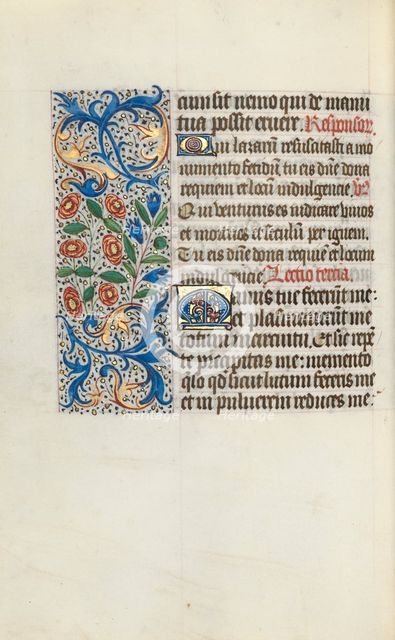 cum sit nemo qui de manu
tua possit eruere. Responsor.
Qui lazarum resuscitasti a mo
numento fetidum tu eis dñe dona
requiem et locum indulgencie V̷
Qui venturus es iudicare vivos
et mortuos et seculum per ignem.
Tu eis dñe dona requiē et locum
indulgencie. Lectio tercia.
Manus tue fecerunt me:
et plasmaverunt me
totum in circuitu. Et sic repē
te precipitas me: memento
q̄so qd̕ sicut lutum feceris me
et in pulverem reduces me:
heritage